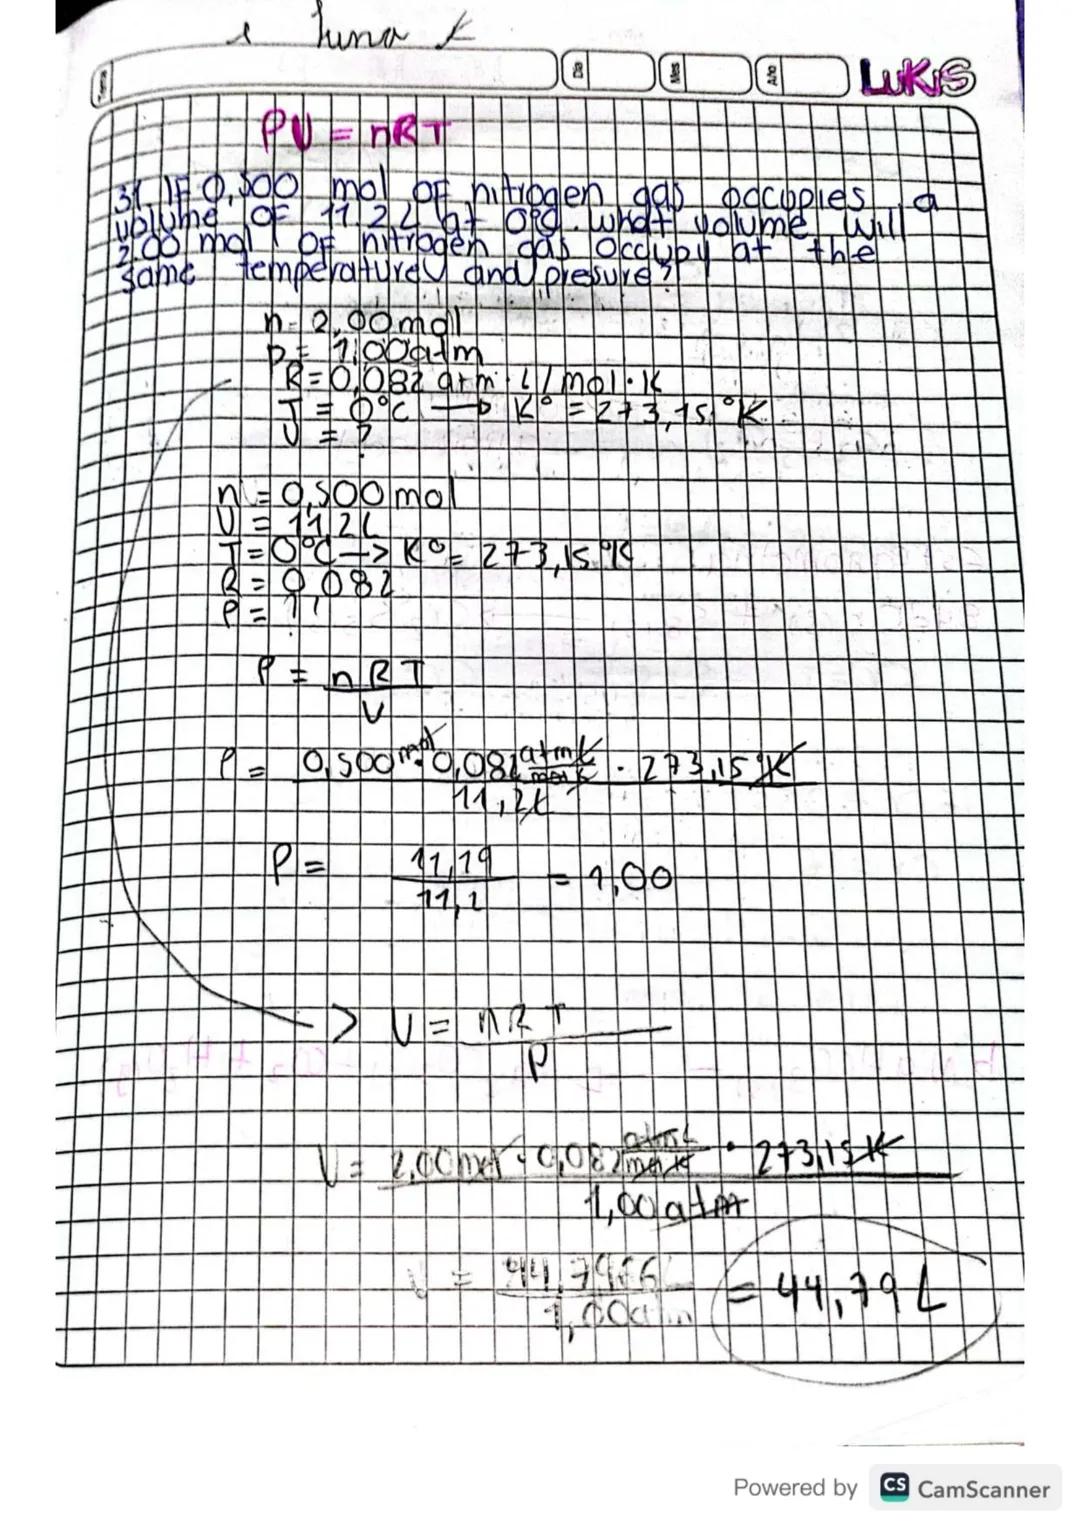 Luna
Tema
Día
Mes
Año
LUKIS
PV = nRT
31. IF 0,500 mol OF nitrogen gas occupies a
volume OF 11,2L at 0°C. what volume will
2.00 mol OF nitrogen gas occupy at the
same temperature and presure?
n= 2,00mol
p= 1,00atm
R=0,082 atm · L / mol · K
T = 0°C → K° = 273,15 °K
V = ?
n = 0,500 mol
V = 11,2L
T = 0°C → K° = 273,15 °K
R = 0,082
P = ?
P = nRT
V
P = 0,500 mol · 0,082 atm L / mol K · 273,15 °K
11,2L
P = 11,19 = 1,00
11,2
> V = nRT
P
V = 2,00mol · 0,082 atm L / mol K · 273,15 K
1,00 atm
V = 44,7966 L = 44,79 L
1,00atm
Powered by CS CamScanner